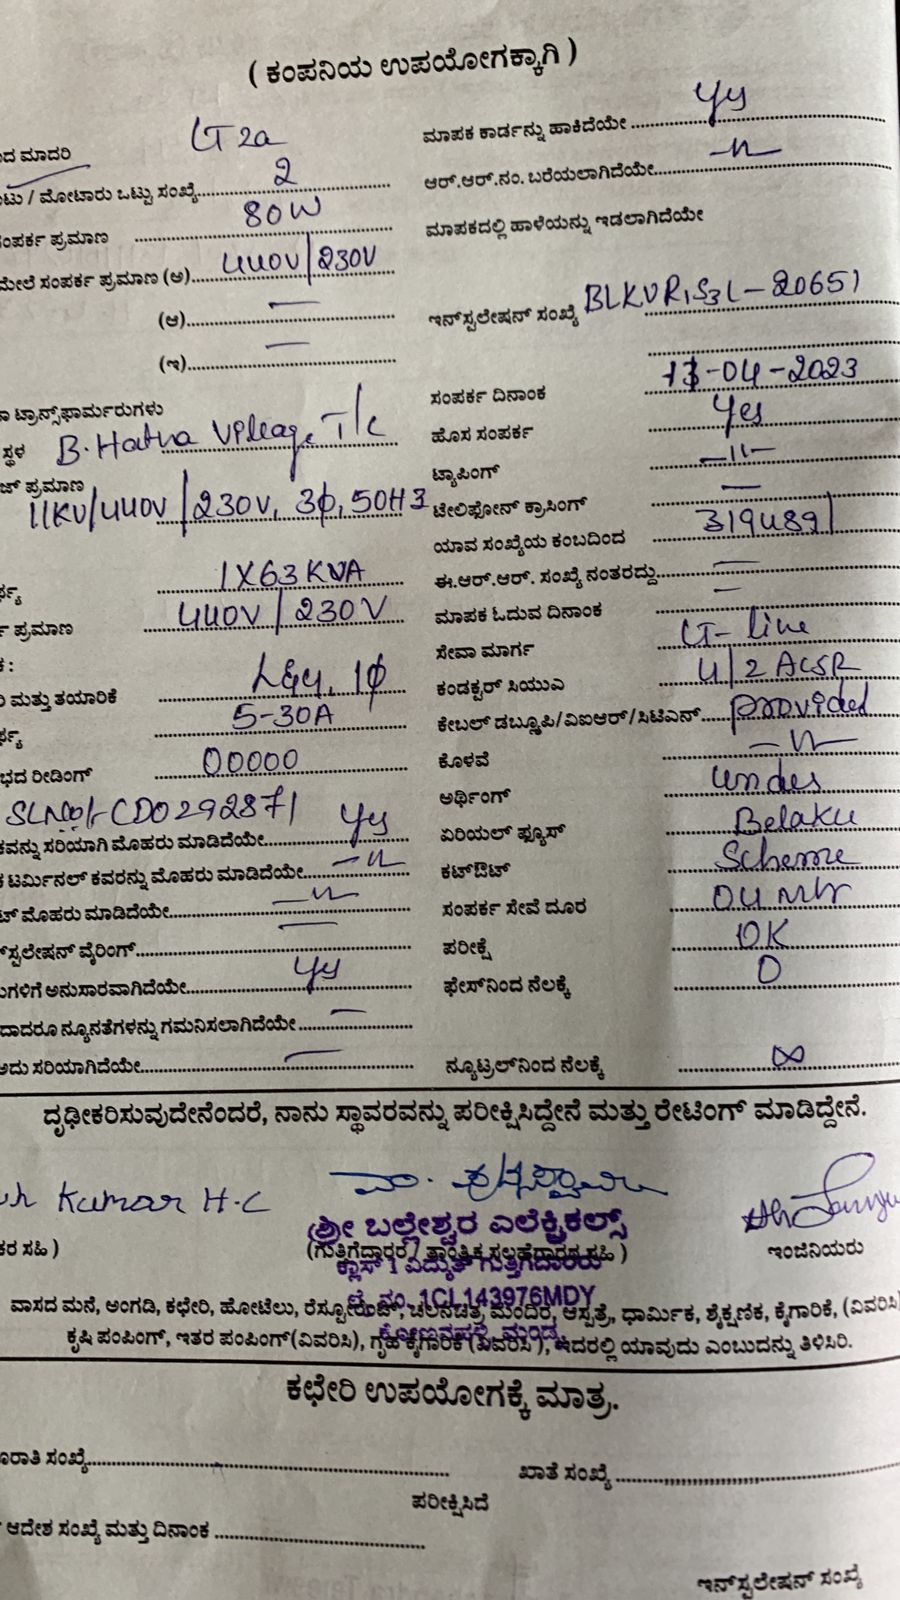 ( ಕಂಪನಿಯ ಉಪಯೋಗಕ್ಕಾಗಿ )
ದ ಮಾದರಿ LT 2a
ಟು / ಮೋಟಾರು ಒಟ್ಟು ಸಂಖ್ಯೆ 2
ಸಂಪರ್ಕ ಪ್ರಮಾಣ 80W
ಮೇಲೆ ಸಂಪರ್ಕ ಪ್ರಮಾಣ (ಅ) 440V/230V
(ಆ) —
(ಇ) —
ಟ್ರಾನ್ಸ್‌ಫಾರ್ಮರುಗಳು
ಸ್ಥಳ B. Hatna Village T/c
ಜ್ ಪ್ರಮಾಣ
11KV/440V/230V, 3ϕ, 50HZ
1X63 KVA
ಪ್ರಮಾಣ 440V/230V
ಿ ಮತ್ತು ತಯಾರಿಕೆ L&G, 1ϕ
5-30A
ಭದ ರೀಡಿಂಗ್ 00000
SLNO:-CD0292871
ಕವನ್ನು ಸರಿಯಾಗಿ ಮೊಹರು ಮಾಡಿದೆಯೇ Yes
ಕ ಟರ್ಮಿನಲ್ ಕವರನ್ನು ಮೊಹರು ಮಾಡಿದೆಯೇ —"—
ಟ್ ಮೊಹರು ಮಾಡಿದೆಯೇ —"—
ನ್‌ಸ್ಟಲೇಷನ್ ವೈರಿಂಗ್ —
ುಗಳಿಗೆ ಅನುಸಾರವಾಗಿದೆಯೇ Yes
ದಾದರೂ ನ್ಯೂನತೆಗಳನ್ನು ಗಮನಿಸಲಾಗಿದೆಯೇ —
ಅದು ಸರಿಯಾಗಿದೆಯೇ —
ಮಾಪಕ ಕಾರ್ಡನ್ನು ಹಾಕಿದೆಯೇ Yes
ಆರ್.ಆರ್.ನಂ. ಬರೆಯಲಾಗಿದೆಯೇ —"—
ಮಾಪಕದಲ್ಲಿ ಹಾಳೆಯನ್ನು ಇಡಲಾಗಿದೆಯೇ
ಇನ್‌ಸ್ಟಲೇಷನ್ ಸಂಖ್ಯೆ BLKVR,S3L-20651
ಸಂಪರ್ಕ ದಿನಾಂಕ 13-04-2023
ಹೊಸ ಸಂಪರ್ಕ Yes
ಟ್ಯಾಪಿಂಗ್ —"—
ಟೇಲಿಫೋನ್ ಕ್ರಾಸಿಂಗ್ —
ಯಾವ ಸಂಖ್ಯೆಯ ಕಂಬದಿಂದ 319489/
ಈ.ಆರ್.ಆರ್. ಸಂಖ್ಯೆ ನಂತರದ್ದು —
ಮಾಪಕ ಓದುವ ದಿನಾಂಕ —
ಸೇವಾ ಮಾರ್ಗ LT- line
ಕಂಡಕ್ಟರ್ ಸಿಯುಎ 4/2 ACSR
ಕೇಬಲ್ ಡಬ್ಲ್ಯೂಪಿ/ವಿಐಆರ್/ಸಿಟಿಎನ್ provided
ಕೊಳವೆ —"—
ಅರ್ಥಿಂಗ್ under
ಏರಿಯಲ್ ಫ್ಯೂಸ್ Belaku
ಕಟ್‌ಔಟ್ Scheme
ಸಂಪರ್ಕ ಸೇವೆ ದೂರ 04 Mtr
ಪರೀಕ್ಷೆ OK
ಫೇಸ್‌ನಿಂದ ನೆಲಕ್ಕೆ 0
ನ್ಯೂಟ್ರಲ್‌ನಿಂದ ನೆಲಕ್ಕೆ ∞
ದೃಢೀಕರಿಸುವುದೇನೆಂದರೆ, ನಾನು ಸ್ಥಾವರವನ್ನು ಪರೀಕ್ಷಿಸಿದ್ದೇನೆ ಮತ್ತು ರೇಟಿಂಗ್ ಮಾಡಿದ್ದೇನೆ.
Kumar H.C
ಕರ ಸಹಿ )
ಶ್ರೀ ಬಲ್ಲೇಶ್ವರ ಎಲೆಕ್ಟ್ರಿಕಲ್ಸ್
(ಗುತ್ತಿಗೆದಾರರ / ತಾಂತ್ರಿಕ ಸಲಹೆಗಾರರ ಸಹಿ )
ಕ್ಲಾಸ್ 1 ವಿದ್ಯುತ್ ಗುತ್ತಿಗೆದಾರರು
ಇಂಜಿನಿಯರು
ಲೈ. ನಂ. 1CL143976MDY
ವಾಸದ ಮನೆ, ಅಂಗಡಿ, ಕಛೇರಿ, ಹೋಟೆಲು, ರೆಸ್ಟೋರೆಂಟ್, ಚಲನಚಿತ್ರ ಮಂದಿರ, ಆಸ್ಪತ್ರೆ, ಧಾರ್ಮಿಕ, ಶೈಕ್ಷಣಿಕ, ಕೈಗಾರಿಕೆ, (ವಿವರಿಸಿ)
ಕೃಷಿ ಪಂಪಿಂಗ್, ಇತರ ಪಂಪಿಂಗ್(ವಿವರಿಸಿ), ಗೃಹ ಕೈಗಾರಿಕೆ (ವಿವರಿಸಿ), ಇದರಲ್ಲಿ ಯಾವುದು ಎಂಬುದನ್ನು ತಿಳಿಸಿರಿ.
ಕಛೇರಿ ಉಪಯೋಗಕ್ಕೆ ಮಾತ್ರ.
ರಾತಿ ಸಂಖ್ಯೆ
ಖಾತೆ ಸಂಖ್ಯೆ
ಪರೀಕ್ಷಿಸಿದೆ
ಆದೇಶ ಸಂಖ್ಯೆ ಮತ್ತು ದಿನಾಂಕ
ಇನ್‌ಸ್ಟಲೇಷನ್ ಸಂಖ್ಯೆ